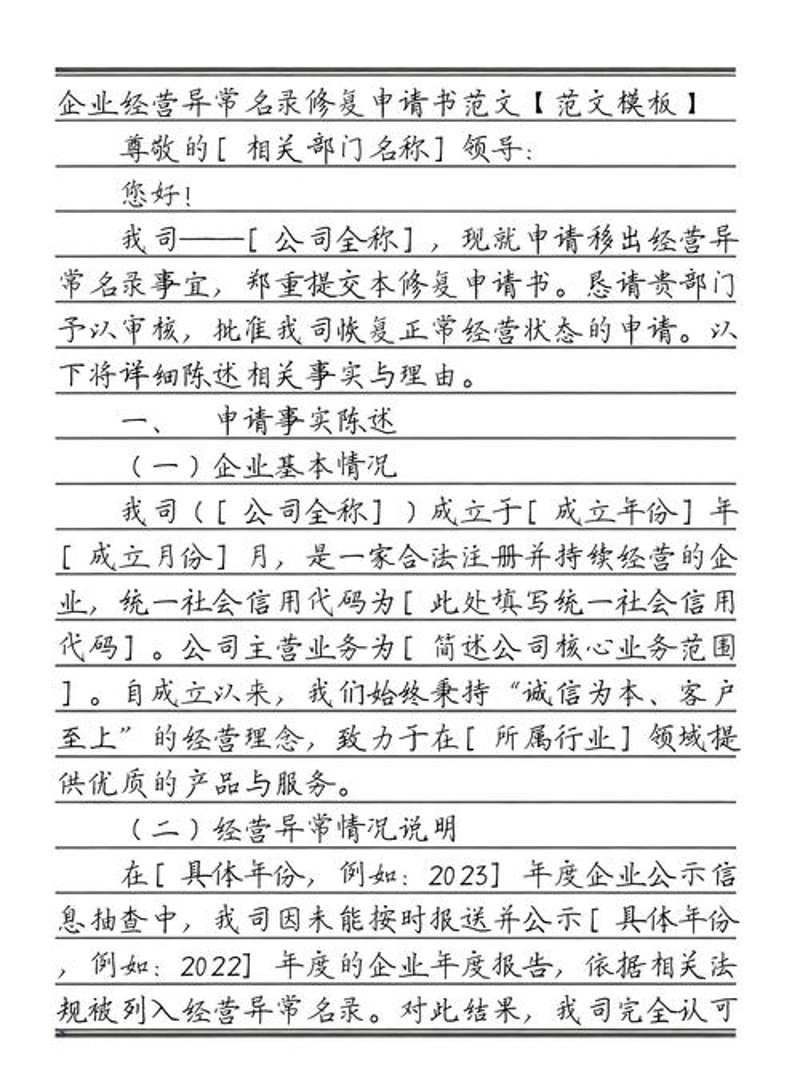 企业经营异常名录修复申请书范文【范文模板】
尊敬的[ 相关部门名称] 领导：
您好！
我司——[ 公司全称] ，现就申请移出经营异
常名录事宜，郑重提交本修复申请书。恳请贵部门
予以审核，批准我司恢复正常经营状态的申请。以
下将详细陈述相关事实与理由。
一、 申请事实陈述
（一）企业基本情况
我司（[ 公司全称] ）成立于[ 成立年份] 年
[ 成立月份] 月，是一家合法注册并持续经营的企
业，统一社会信用代码为[ 此处填写统一社会信用
代码] 。公司主营业务为[ 简述公司核心业务范围
] 。自成立以来，我们始终秉持“诚信为本、客户
至上”的经营理念，致力于在[ 所属行业] 领域提
供优质的产品与服务。
（二）经营异常情况说明
在[ 具体年份，例如：2023] 年度企业公示信
息抽查中，我司因未能按时报送并公示[ 具体年份
，例如：2022] 年度的企业年度报告，依据相关法
规被列入经营异常名录。对此结果，我司完全认可